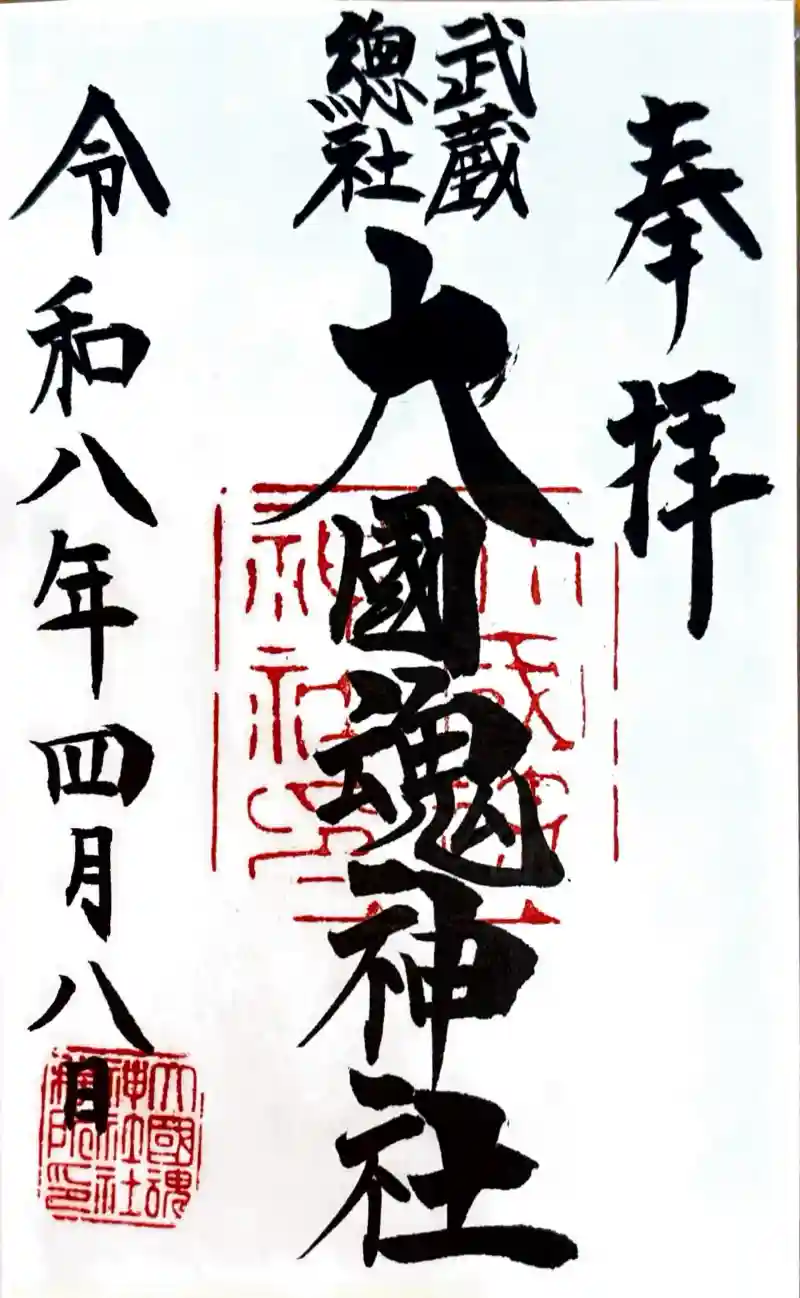 奉拝
武蔵
總社
大國魂神社
令和八年四月八日
大國魂
神社社
務所印